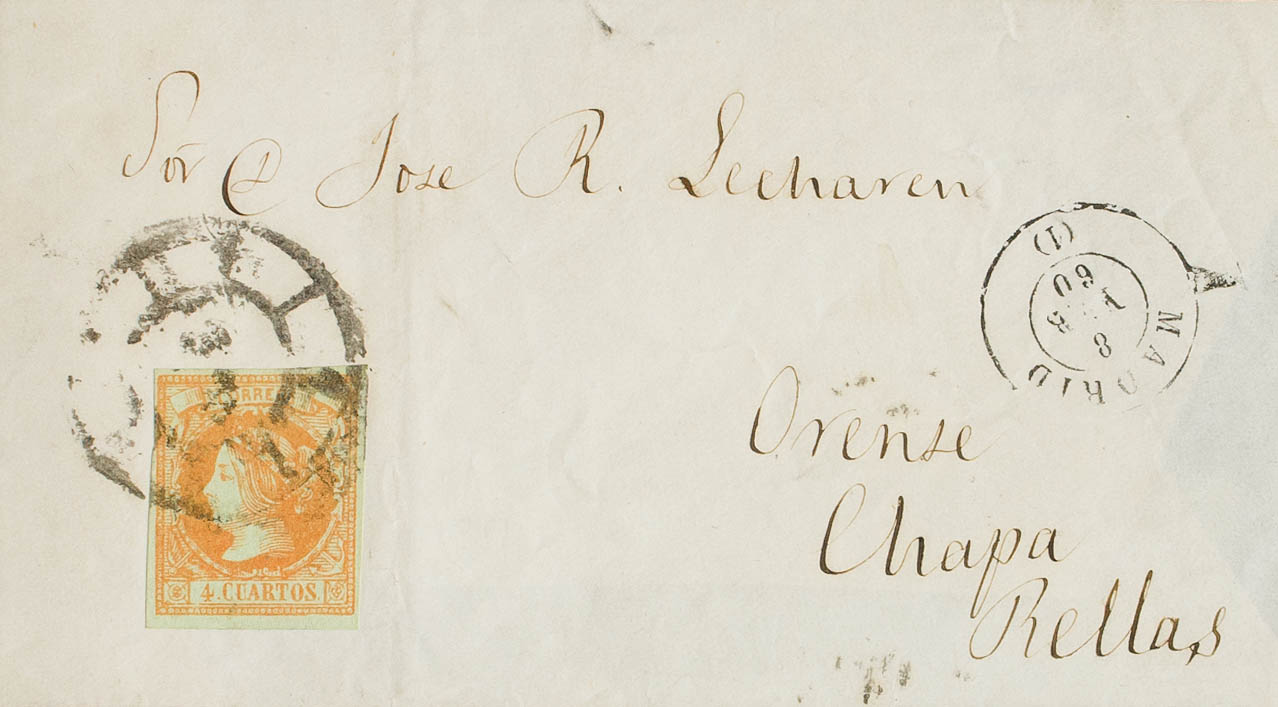 Sōr D Jose R. Lecharen
MADRID
(1)
8
60
CORREOS
Orense
4 CUARTOS.
Chapa
Rellas